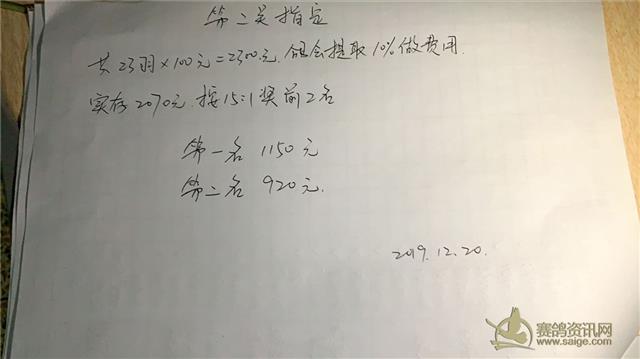 第二关指定
共23羽×100元=2300元.鸽会提取10%做费用.
实存2070元.按15:1奖前2名
第一名 1150元
第二名 920元.
2019.12.20.
赛鸽资讯网
www.saige.com